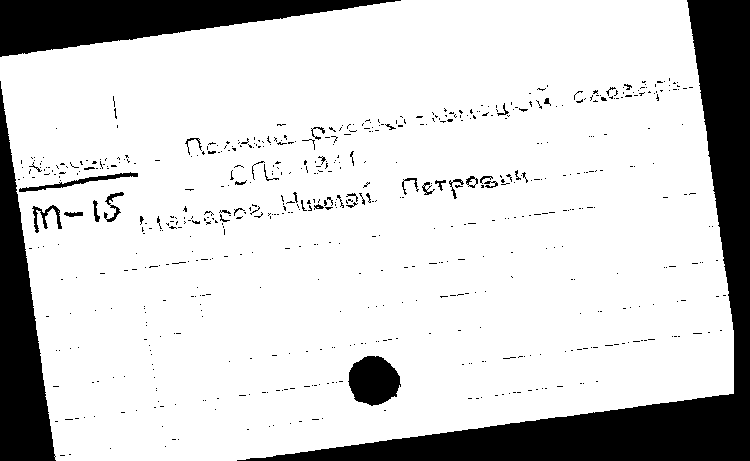 Полный русско-нѣмецкій словарь
СПб. 1911.
М-15 Макаров, Николай Петрович